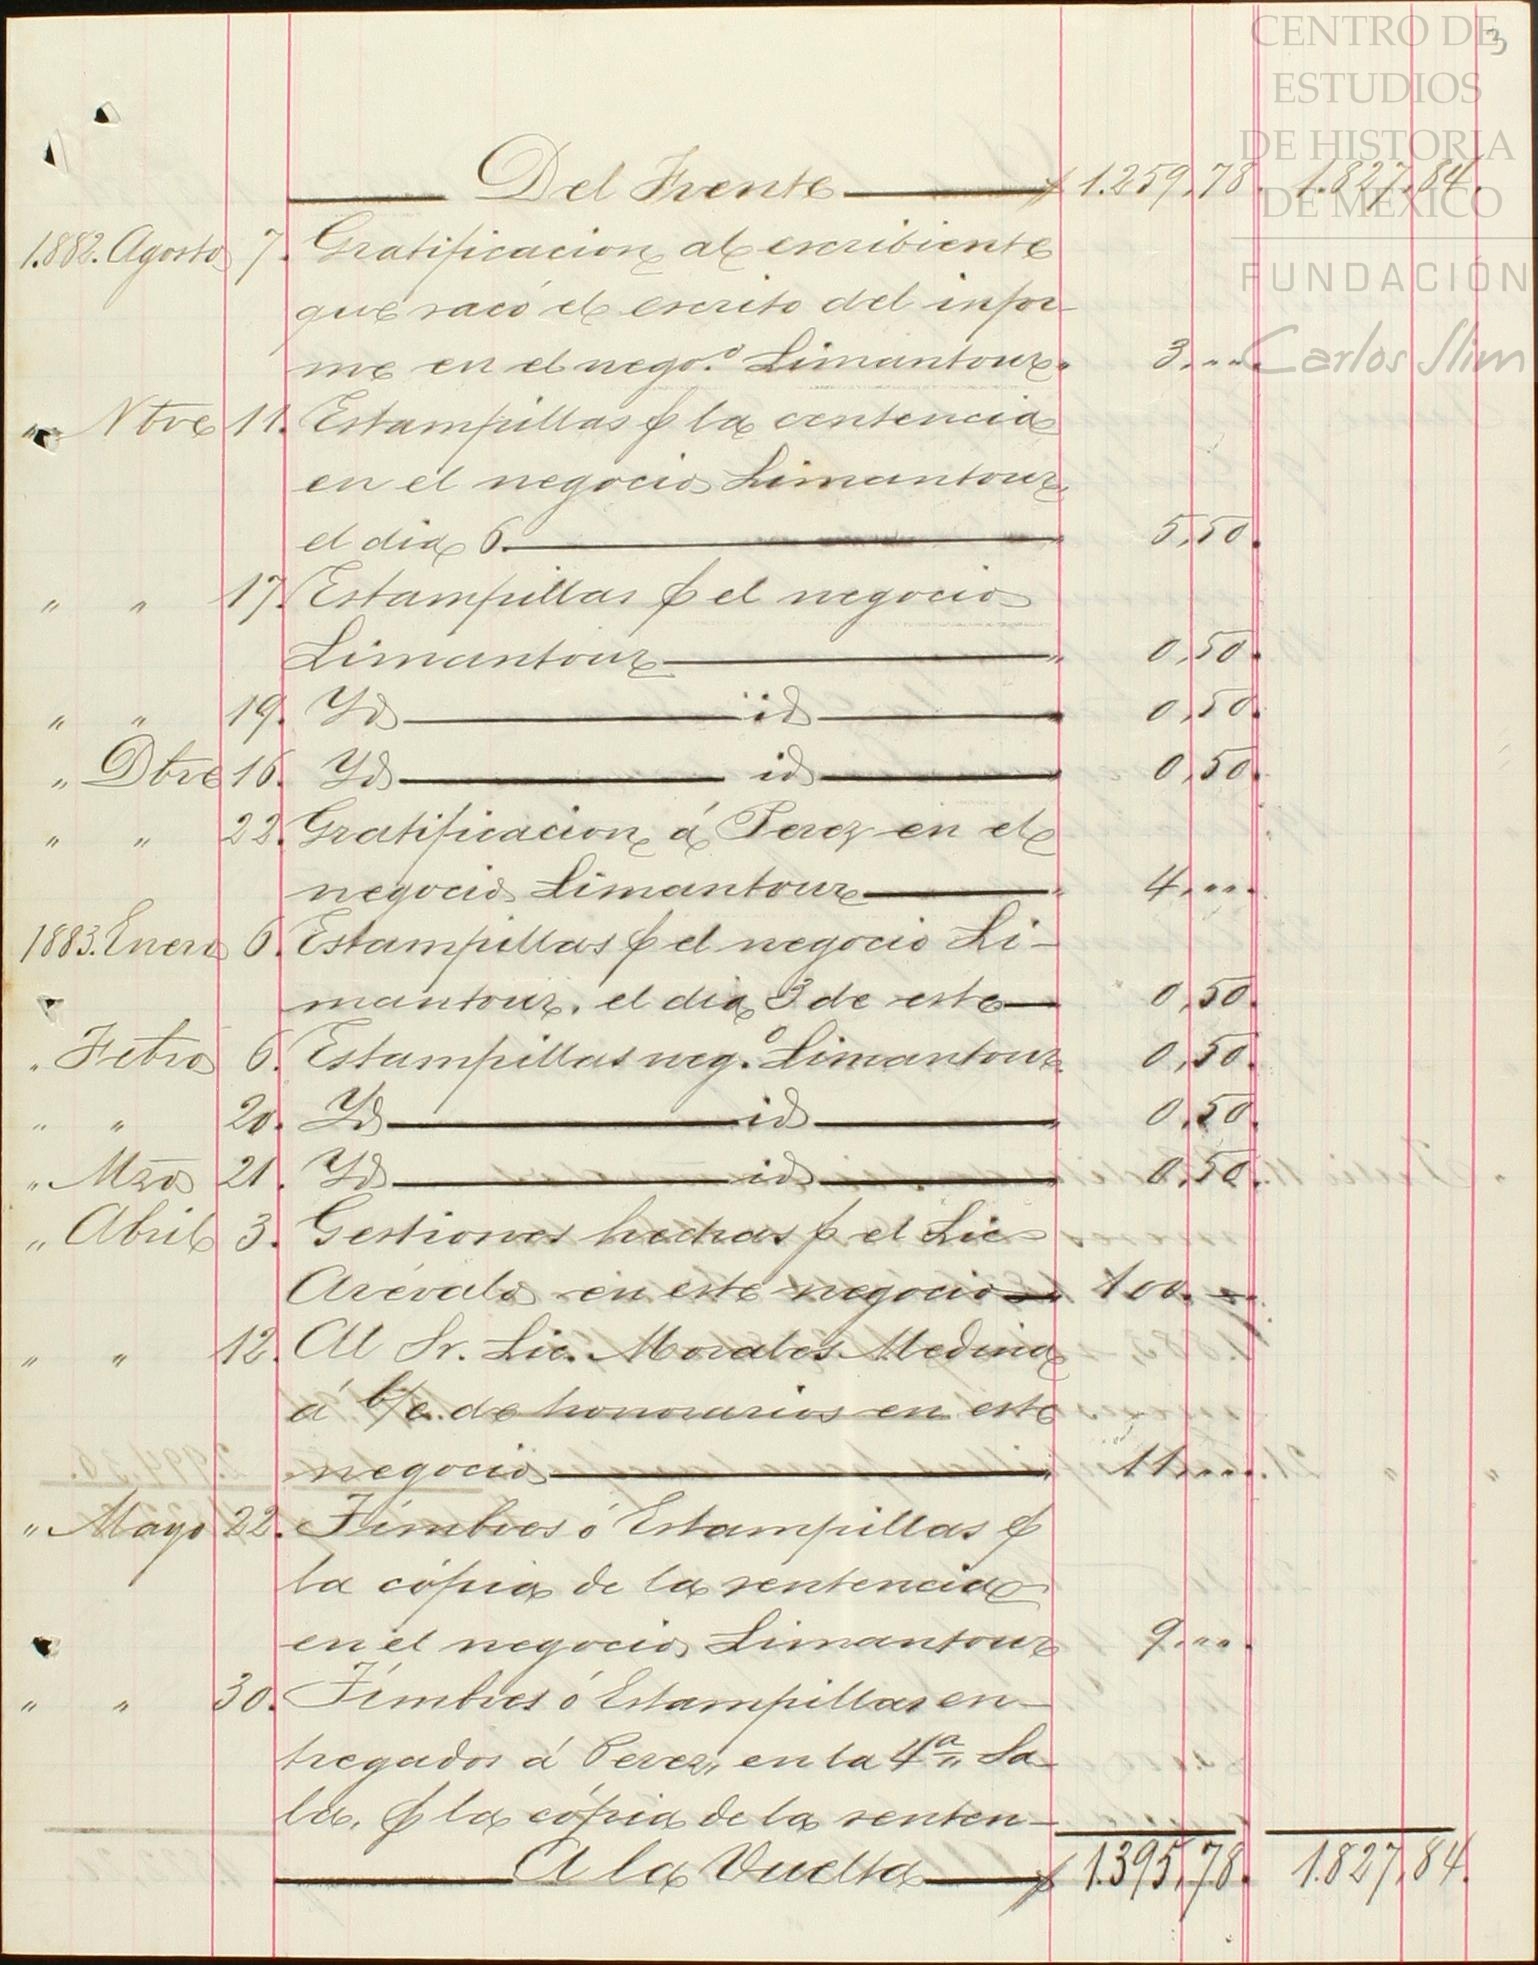 CENTRO DE
ESTUDIOS
DE HISTORIA
DE MEXICO
FUNDACIÓN
Carlos Slim
3
Del Frente $ 1.259,78. 1.827,84.
1.882. Agosto 7. Gratificacion al escribiente
que sacó el escrito del infor-
me en el nego.º Limantour. 3,...
" Nbre 11. Estampillas p la centencia
en el negocio Limantour
el dia 6. 5,50.
" " 17. Estampillas p el negocio
Limantour " 0,50.
" " 19. Yd id " 0,50.
" Dbre 16. Yd id " 0,50.
" " 22. Gratificacion á Perez en el
negocio Limantour " 4,...
1883. Enero 6. Estampillas p el negocio Li-
mantour, el dia 3 de este 0,50.
" Febro 6. Estampillas neg.º Limantour 0,50.
" " 20. Yd id " 0,50.
" Mzo 21. Yd id " 0,50.
" Abril 3. Gestiones hechas p el Lic
Arévalo en este negocio 100.
" " 12. Al Sr. Lic. Morales Medina
á b/c. de honorarios en este
negocio " 11....
" Mayo 22. Timbres ó Estampillas p
la cópia de la sentencia
en el negocio Limantour 9...
" " 30. Timbres ó Estampillas en-
tregados á Perez, en la 4ª Sa-
la, p la cópia de la senten-
A la Vuelta $ 1.395,78. 1.827,84.